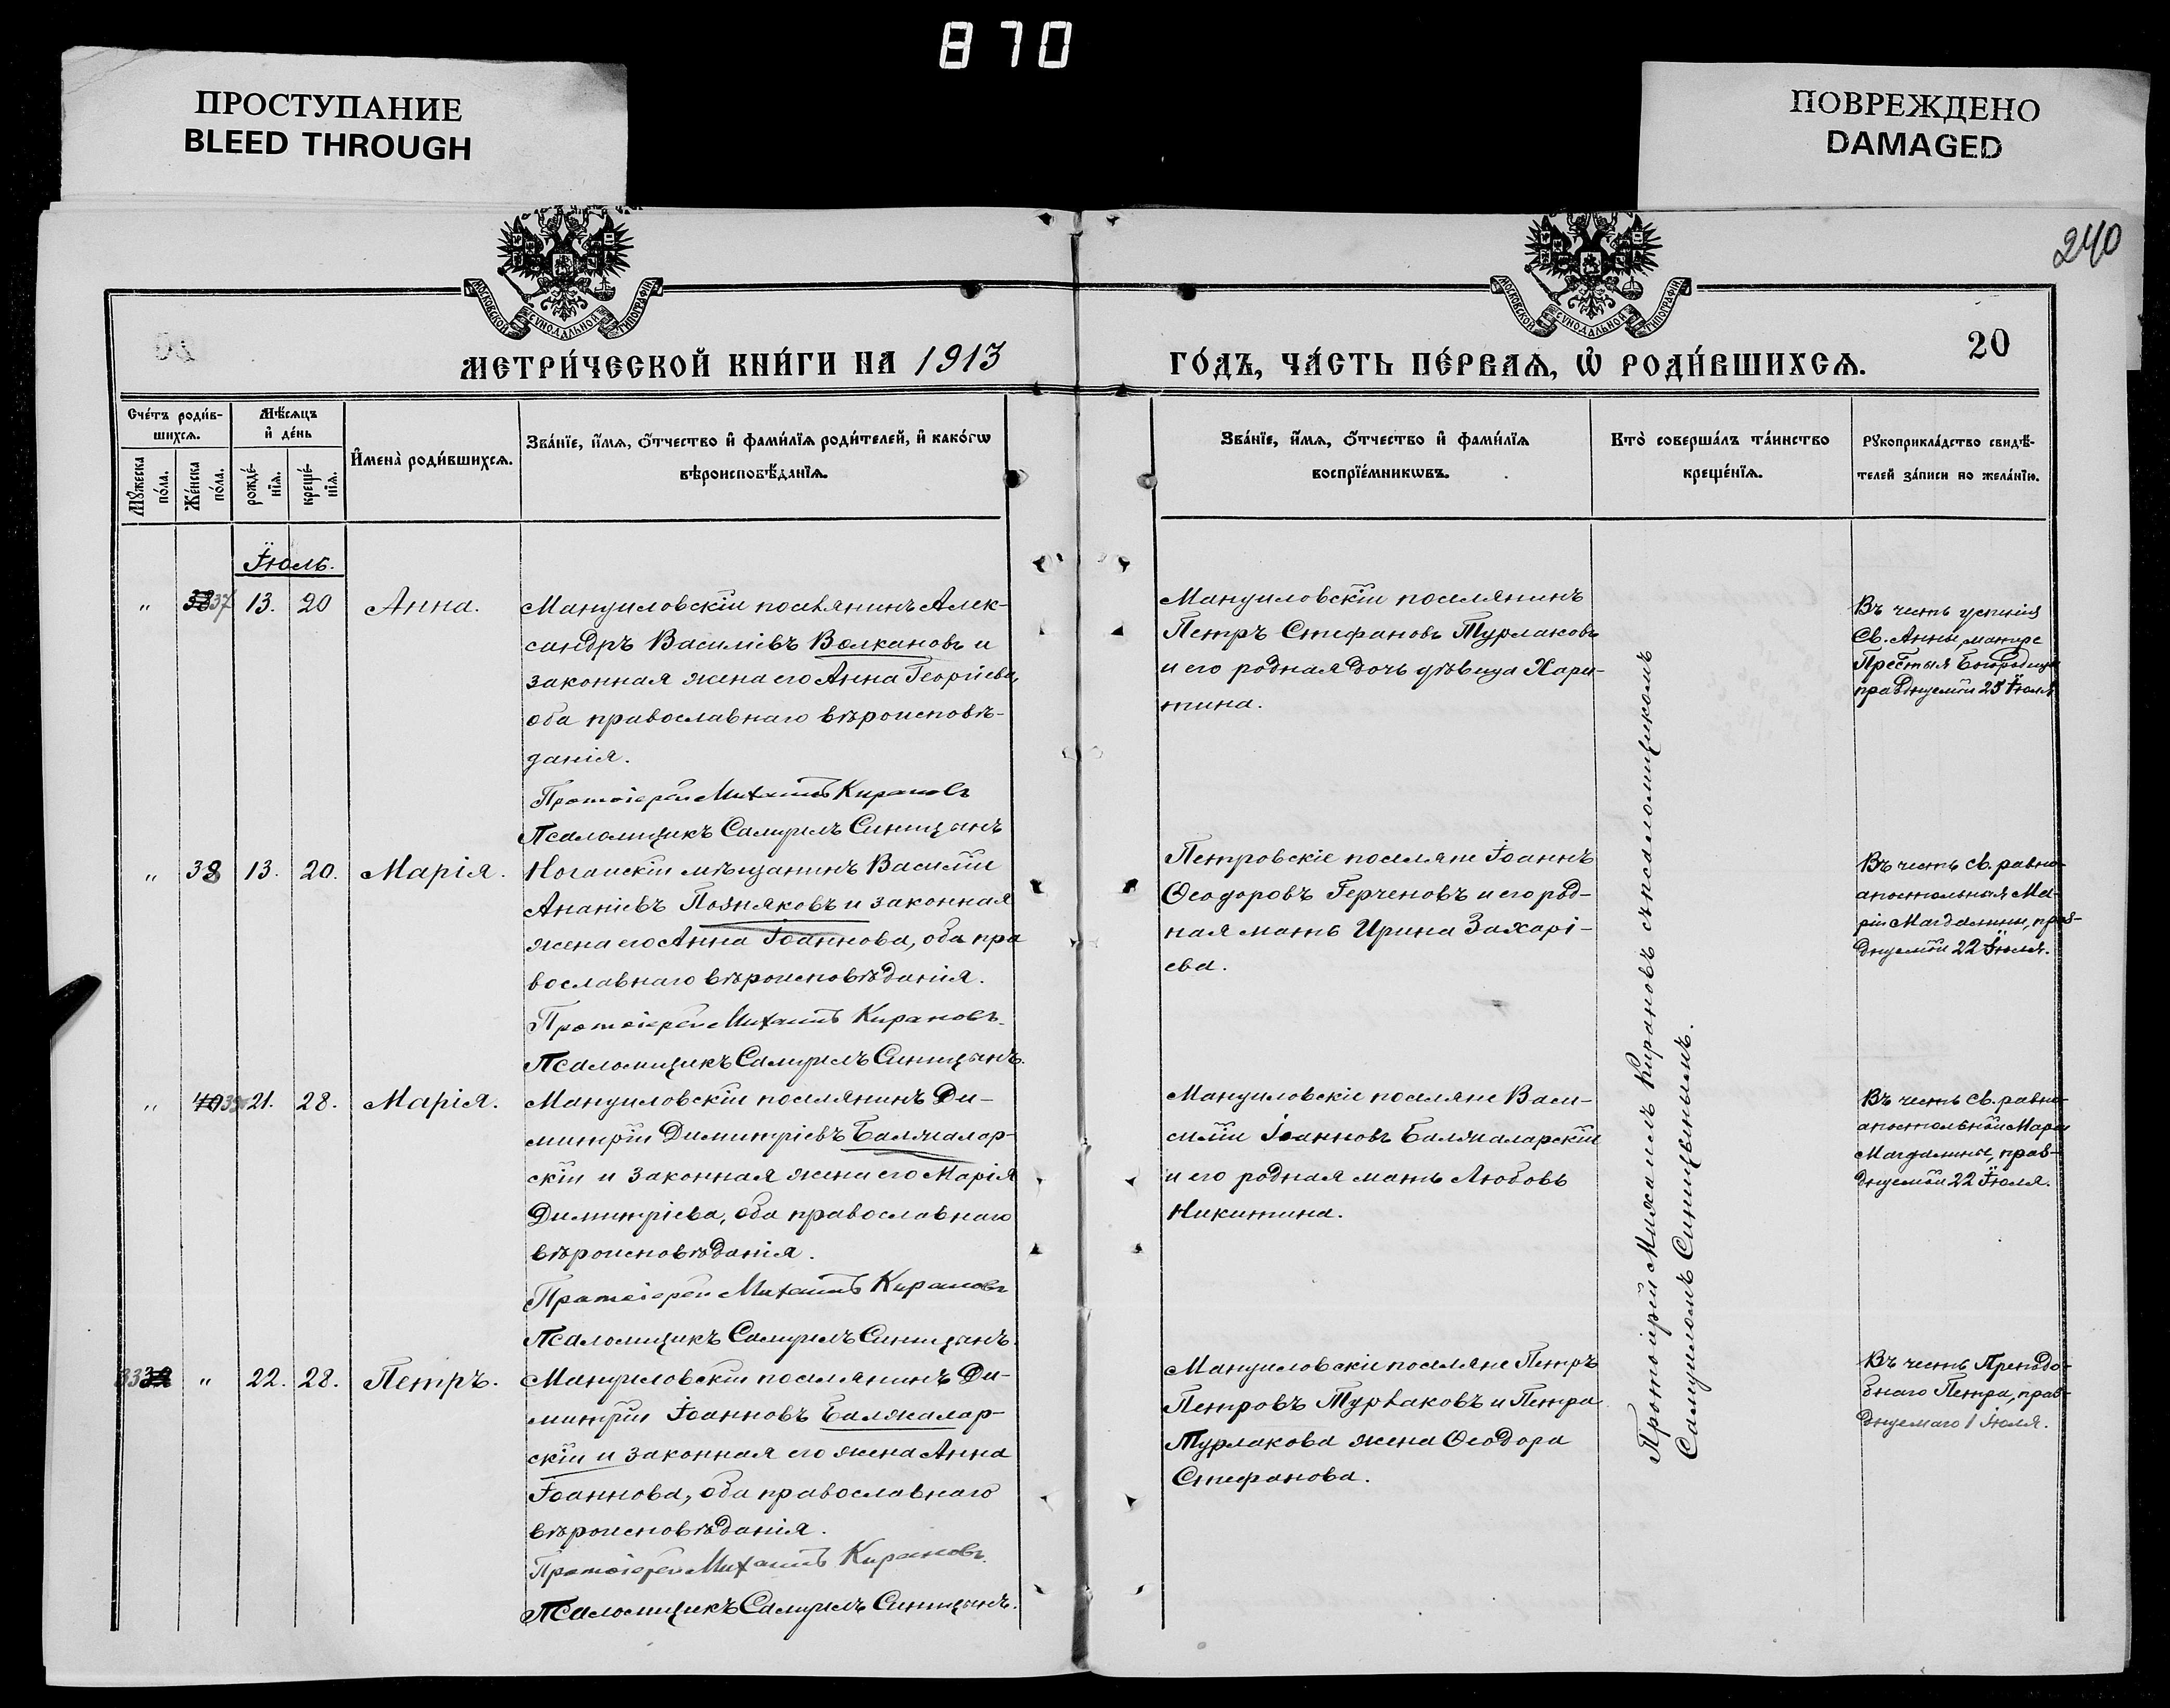 870
ПРОСТУПАНИЕ
BLEED THROUGH
ПОВРЕЖДЕНО
DAMAGED
240
МОСКОВСКОЙ СУНОДАЛЬНОЙ ТИПОГРАФІИ
МОСКОВСКОЙ СУНОДАЛЬНОЙ ТИПОГРАФІИ
20
МЕТРИ́ЧЕСКОЙ КНИ́ГИ НА 1913
ГО́ДЪ, ЧА́СТЬ ПЕ́РВАѦ, Ѡ҆ РОДИ́ВШИХСѦ.
Сче́тъ роди́в-
шихсѧ.
Мꙋ́жеска
по́ла.
Же́нска
по́ла.
Мѣ́сѧцъ
и҆ де́нь
рожде́-
нїѧ.
креще́-
нїѧ.
И҆мена̀ роди́вшихсѧ.
Зва́нїе, и҆́мѧ, ѻ҆́тчество и҆ фами́лїѧ роди́телей, и҆ како́гѡ
вѣроисповѣ́данїѧ.
Зва́нїе, и҆́мѧ, ѻ҆́тчество и҆ фами́лїѧ
воспрїе́мникѡвъ.
Кто̀ соверша́лъ та́инство
креще́нїѧ.
Рꙋкоприкла́дство свидѣ́-
телей за́писи по жела́нїю.
Іюль.
„ 38 37 13. 20 Анна.
Мануиловскій поселянинъ Алек-
сандръ Василіевъ Волкановъ и
законная жена его Анна Георгіева,
оба православнаго вѣроисповѣ-
данія.
Протоіерей Михаилъ Кирановъ
Псаломщикъ Самуилъ Синицынъ
Мануиловскій поселянинъ
Петръ Стефановъ Турлаковъ
и его родная дочь дѣвица Хари-
тина.
Въ честь успенія
Св. Анны, матере
Прес̃тыя Богородицы
празднуемой 25 Іюля
„ 38 13. 20. Марія.
Ногайскій мѣщанинъ Василій
Ананіевъ Позняковъ и законная
жена его Анна Іоаннова, оба пра
вославнаго вѣроисповѣданія.
Протоіерей Михаилъ Кирановъ.
Псаломщикъ Самуилъ Синицынъ.
Петровскіе поселяне Іоаннъ
Ѳеодоровъ Герченовъ и его род-
ная мать Ирина Захарі-
ева.
Въ честь св. равно-
апостольныя Ма-
ріи Магдалины, праз-
днуемой 22 Іюля.
„ 40 39 21. 28. Марія.
Мануиловскій поселянинъ Ди-
митрій Димитріевъ Балжалар-
скій и законная жена его Марія
Димитріева, оба православнаго
вѣроисповѣданія.
Протоіерей Михаилъ Кирановъ
Псаломщикъ Самуилъ Синицынъ.
Мануиловскіе поселяне Васи-
силій Іоанновъ Балжаларскій
и его родная мать Любовь
Никитина.
Въ честь св. равно-
апостольной Маріи
Магдалины, праз-
днуемой 22 Іюля.
33 32 „ 22. 28. Петръ.
Мануиловскій поселянинъ Ди-
митрій Іоанновъ Балжалар-
скій и законная его жена Анна
Іоаннова, оба православнаго
вѣроисповѣданія.
Протоіерей Михаилъ Кирановъ.
Псаломщикъ Самуилъ Синицынъ.
Мануиловскіе поселяне Петръ
Петровъ Турлаковъ и Петра
Турлакова жена Ѳеодора
Стефанова.
Въ честь Преподо-
бнаго Петра, праз-
днуемаго 1 Іюля.
Протоіерей Михаилъ Кирановъ съ псаломщикомъ
Самуиломъ Синицынымъ.